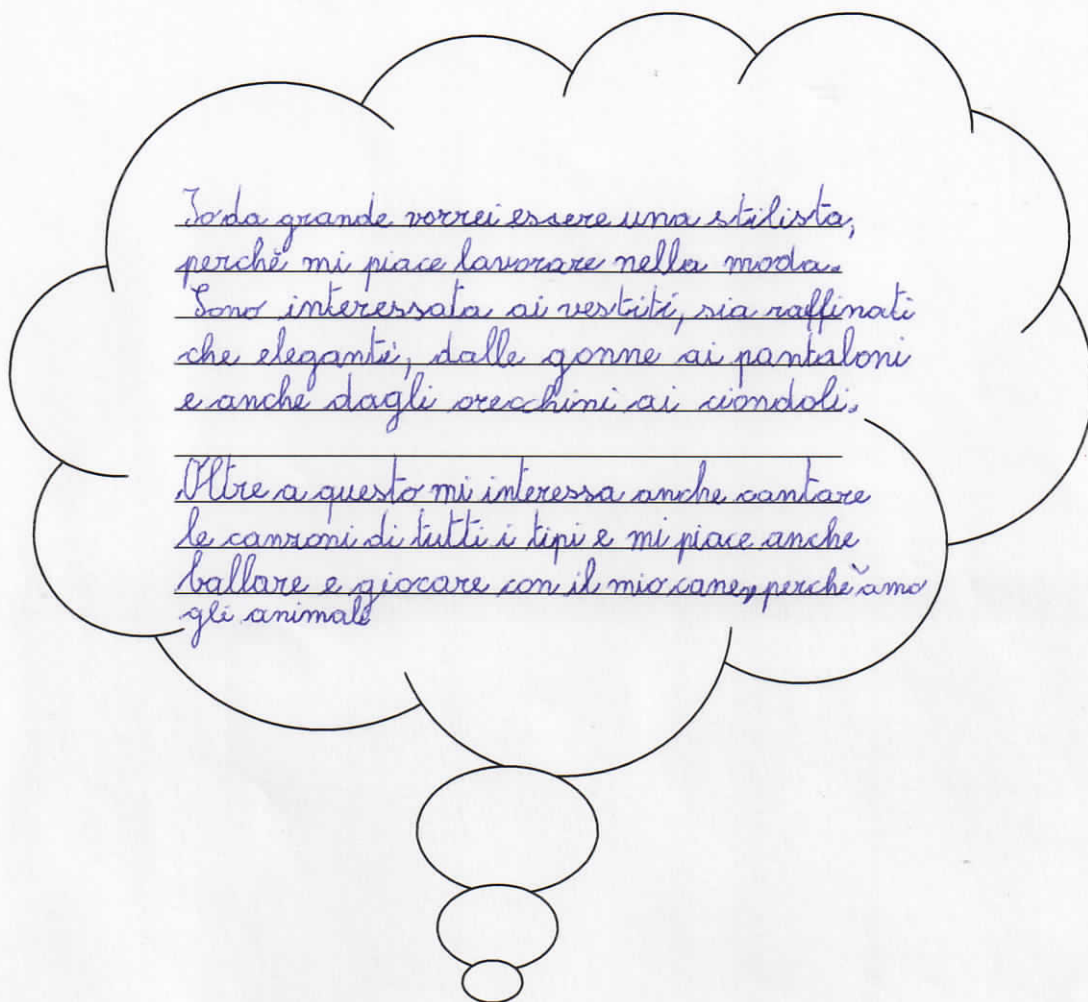 Io da grande vorrei essere una stilista,
perchè mi piace lavorare nella moda.
Sono interessata ai vestiti, sia raffinati
che eleganti, dalle gonne ai pantaloni
e anche dagli orecchini ai ciondoli.
Oltre a questo mi interessa anche cantare
le canzoni di tutti i tipi e mi piace anche
ballare e giocare con il mio cane, perchè amo
gli animali